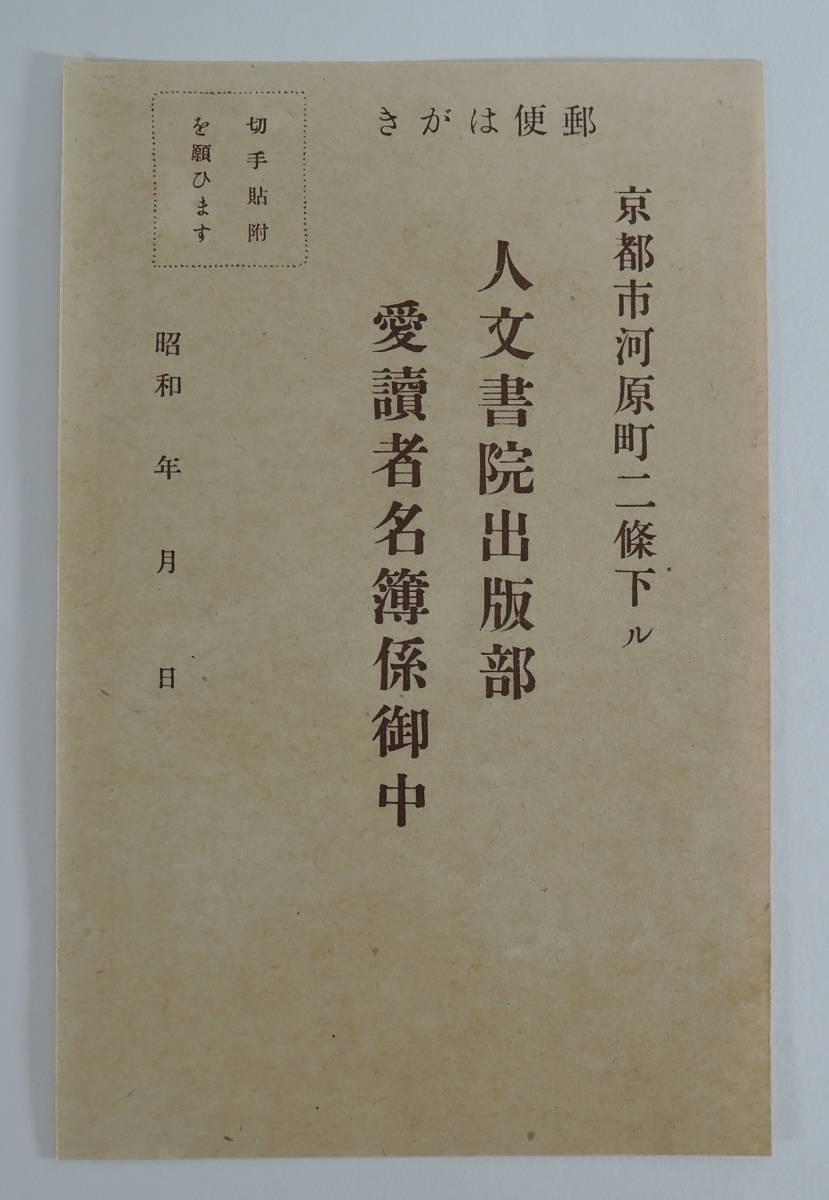 郵便はがき
京都市河原町二條下ル
人文書院出版部
愛讀者名簿係御中
切手貼附
を願ひます
昭和　年　月　日